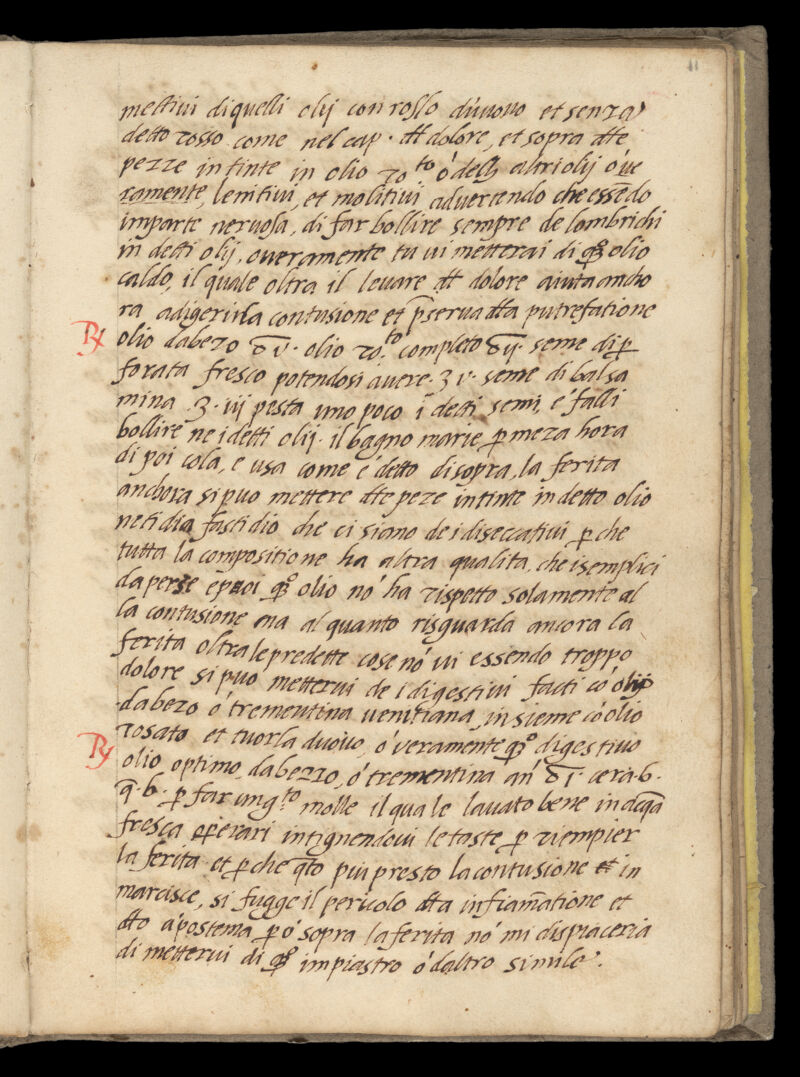 11
mettivi di quelli olij con rosso d'uovo et senza
detto rosso come nel cap. dł dolore, et sopra dłe
pezze intinte in olio ro.to ó delli altri olij o've
ramente, lenitivi, et molitivi advertendo che essēdo
imparte nervosa, di far bollire sempre de lombrichi
in detti olij, overamente tu vi metterai di qsto olio
caldo, il quale oltra il levare dł dolore aiuta ancho
ra adigerirla contusione et p̄serva dła putrefatione
℞ olio dabezo ʒ̄ v. olio ro.to completo ʒ̄ ij. seme di p̱
forata fresco potendosi avere. ʒ v. seme di balsa
mina. ʒ. iij pesta uno poco i detti semi, e' falli
bollire nei detti olij. il bagno marie, p̱ meza hora
di poi cola, e usa come é detto disopra, la ferita
anchora si puo mettere dłe peze intinte in detto olio
ne ti dia fastidio che ci siano de i diseccativi p̱ che
tutta la compositione ha altra qualita, che isemplici
da perse epzoi qsto olio nó ha rispetto solamente al
la contusione ma al quanto risguarda ancora la
ferita oltra le predette cose nó vi essendo troppo
dolore si puo mettervi de i digestivi facti có olij
dabezo ó trementina venitiana, insieme có olio
rosato et tuorla duovo, ó veramente qsto digestivo
℞ olio optimo, dabezzo, ó trementina añ ʒ̄ i. cera. b.
q̄. b. p̱ far ung.to molle il quale lavato bene in acq̄a
fresca operarai intignendovi le taste p̱ riempier
la ferita et p̱ che q̄to piu presto la contusione in
marcisce, si fugge il pericolo dła infiam̄atione et
dło apostema p̱ ó sopra la ferita nó mi dispiaceria
di mettervi di qsto impiastro ó daltro simile.